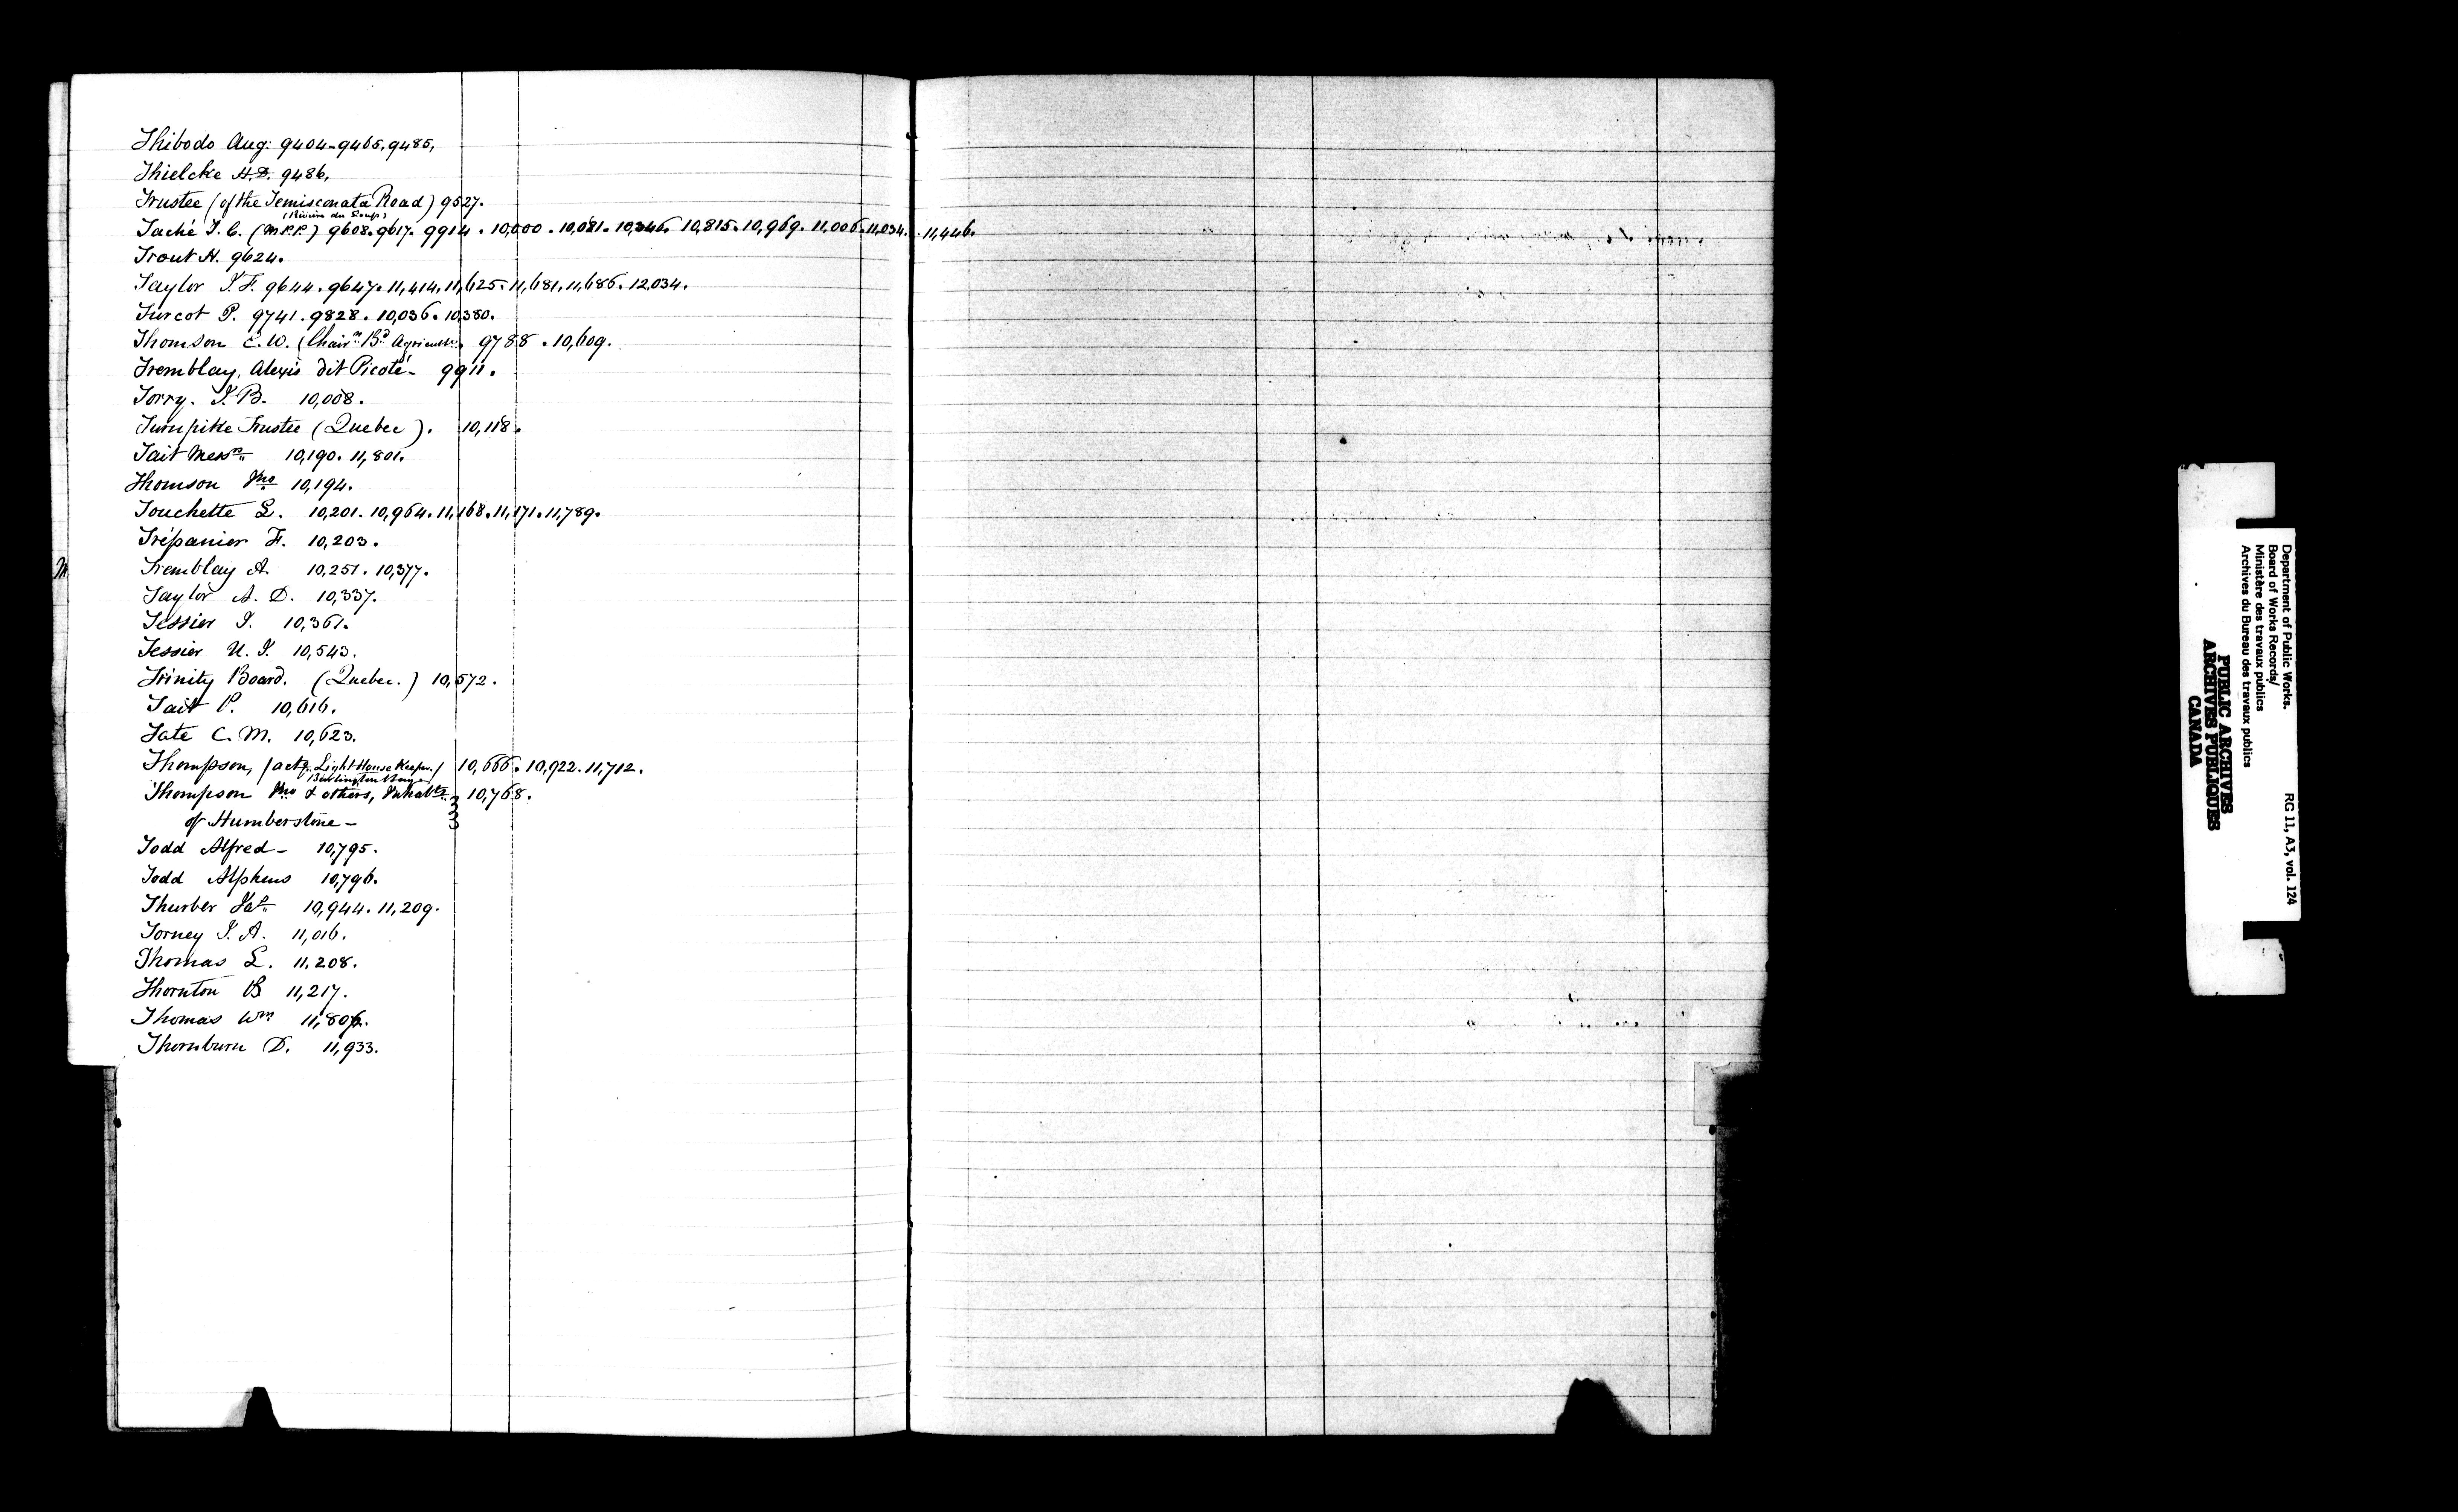 Thibodo Aug: 9404-9465, 9485,
Thielcke H.D. 9486,
Trustee (of the Temisconata Road) 9527.
(Rivière du Loup)
Taché J. C. (M.P.P.) 9608. 9617. 9914. 10,000. 10,081. 10,346. 10,815. 10,969. 11,006. 11,034. 11,446.
Trout H. 9624.
Taylor J. F. 9644. 9647. 11,414. 11,625. 11,681. 11,686. 12,034.
Turcot P. 9741. 9828. 10,036. 10,380.
Thomson E. W. (Chairn Bd Agricult: 9788. 10,609.
Tremblay, Alexis dit Picoté- 9911.
Torry. J. B. 10,008.
Turnpike Trustee (Quebec). 10,118.
Tait Messrs 10,190. 11,801.
Thomson Jno 10,194.
Touchette L. 10,201. 10,964. 11,168. 11,171. 11,789.
Trépanier F. 10,203.
Tremblay A. 10,251. 10,377.
Taylor A. D. 10,337.
Tessier J. 10,361.
Tessier U. J. 10,543.
Trinity Board. (Quebec.) 10,572.
Tait P. 10,616.
Tate C. M. 10,623.
Thompson, (actg. Light House Keeper.) 10,666. 10,922. 11,712.
Burlington Bay
Thompson Jno & others, Inhabts 10,768.
of Humberstone-
Todd Alfred- 10,795.
Todd Alpheus 10,796.
Thurber 10,944. 11,209.
Torney J. A. 11,016.
Thomas L. 11,208.
Thornton B 11,217.
Thomas Wm
Thornburn D. 11,933.
M
Department of Public Works.
Board of Works Records/
Ministère des travaux publics
Archives du Bureau des travaux publics
RG 11, A3, vol. 124
PUBLIC ARCHIVES
ARCHIVES PUBLIQUES
CANADA